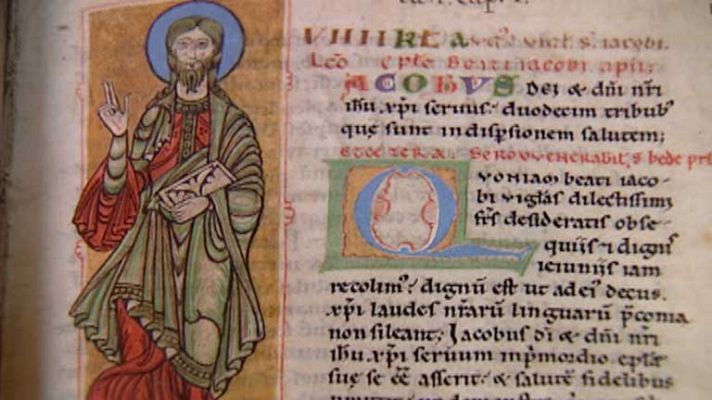 VIIII KL A
Leo eple Beati iacobi apli;
IACOBVS Dei & dñi nr̃i
ihu xp̃i seruus; duodecim tribubꝰ
quę sunt in dispsionem salutem;
Q VONIAM beati iaco-
bi vigilias dilectissimi
fr̃s desideratis obse
quiis ⁊ dignis
ieiuniis iam
recolimꝰ; dignū est ut ad eiꝰ decus.
xp̃i laudes nr̃arū linguarū p̄conia
non sileant; Iacobus di & dñi nr̃i
ihu xp̃i seruum in p̄mordio eplę
suę se eē asserit; & salutē fidelibus